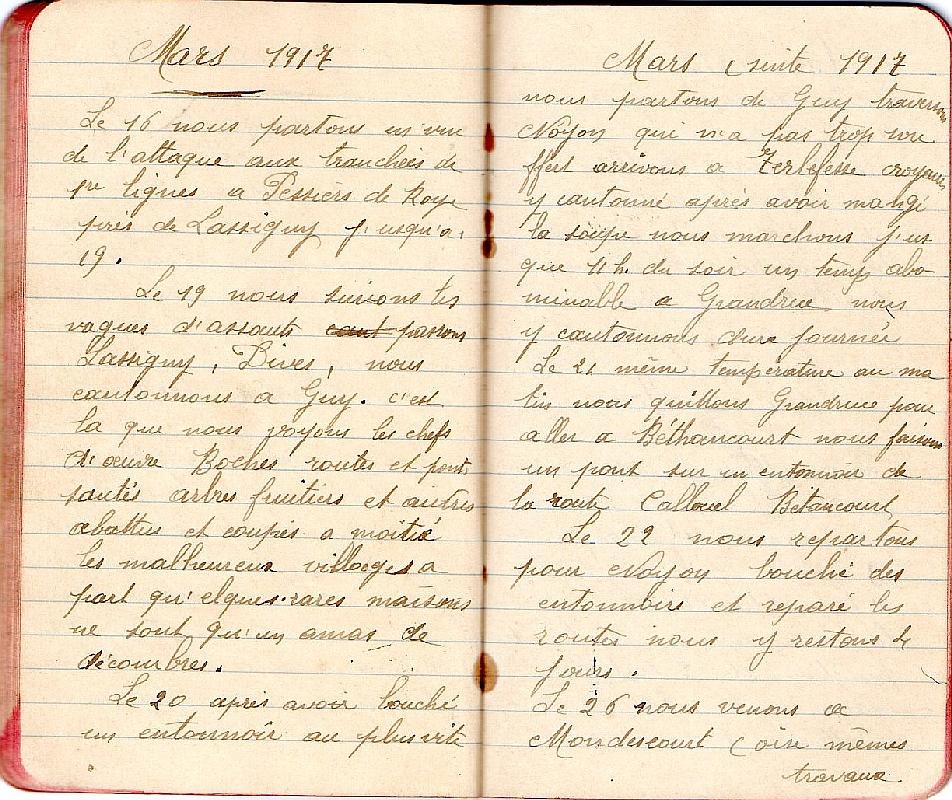 Mars 1917
Le 16 nous partons en vue
de l'attaque aux tranchées de
1re lignes a Pessiers de Roye
près de Lassigny j'usqu'a
19.
Le 19 nous suivons les
vagues d'assauts passons
Lassigny, Dives, nous
cantonnons a Guy. c'est
la que nous voyons les chefs
d'œuvre Boches routes et ponts
sautés arbres fruitiers et autres
abattus et coupés a moitié
les malheureux villages a
part qu'elques rares maisons
ne sont qu'un amas de
décombres.
Le 20 après avoir bouché
un entonnoir au plus vite
Mars suite 1917
nous partons de Guy traversons
Noyon qui n'a pas trop sou
ffert arrivons a croyons
y cantonné après avoir mangé
la soupe nous marchons j'us
que 11h. du soir un temps abo
minable a Grandrue nous
y cantonnons d'une journée
Le 21 même température au ma
tin nous quittons Grandrue pour
aller a Béthancourt nous faisons
un pont sur un entonnoir de
la route Caillouel Betancourt
Le 22 nous repartons
pour Noyon bouché des
entonnoirs et reparé les
routes nous y restons 4
jours.
Le 26 nous venons a
Mondescourt (oise mêmes
travaux.